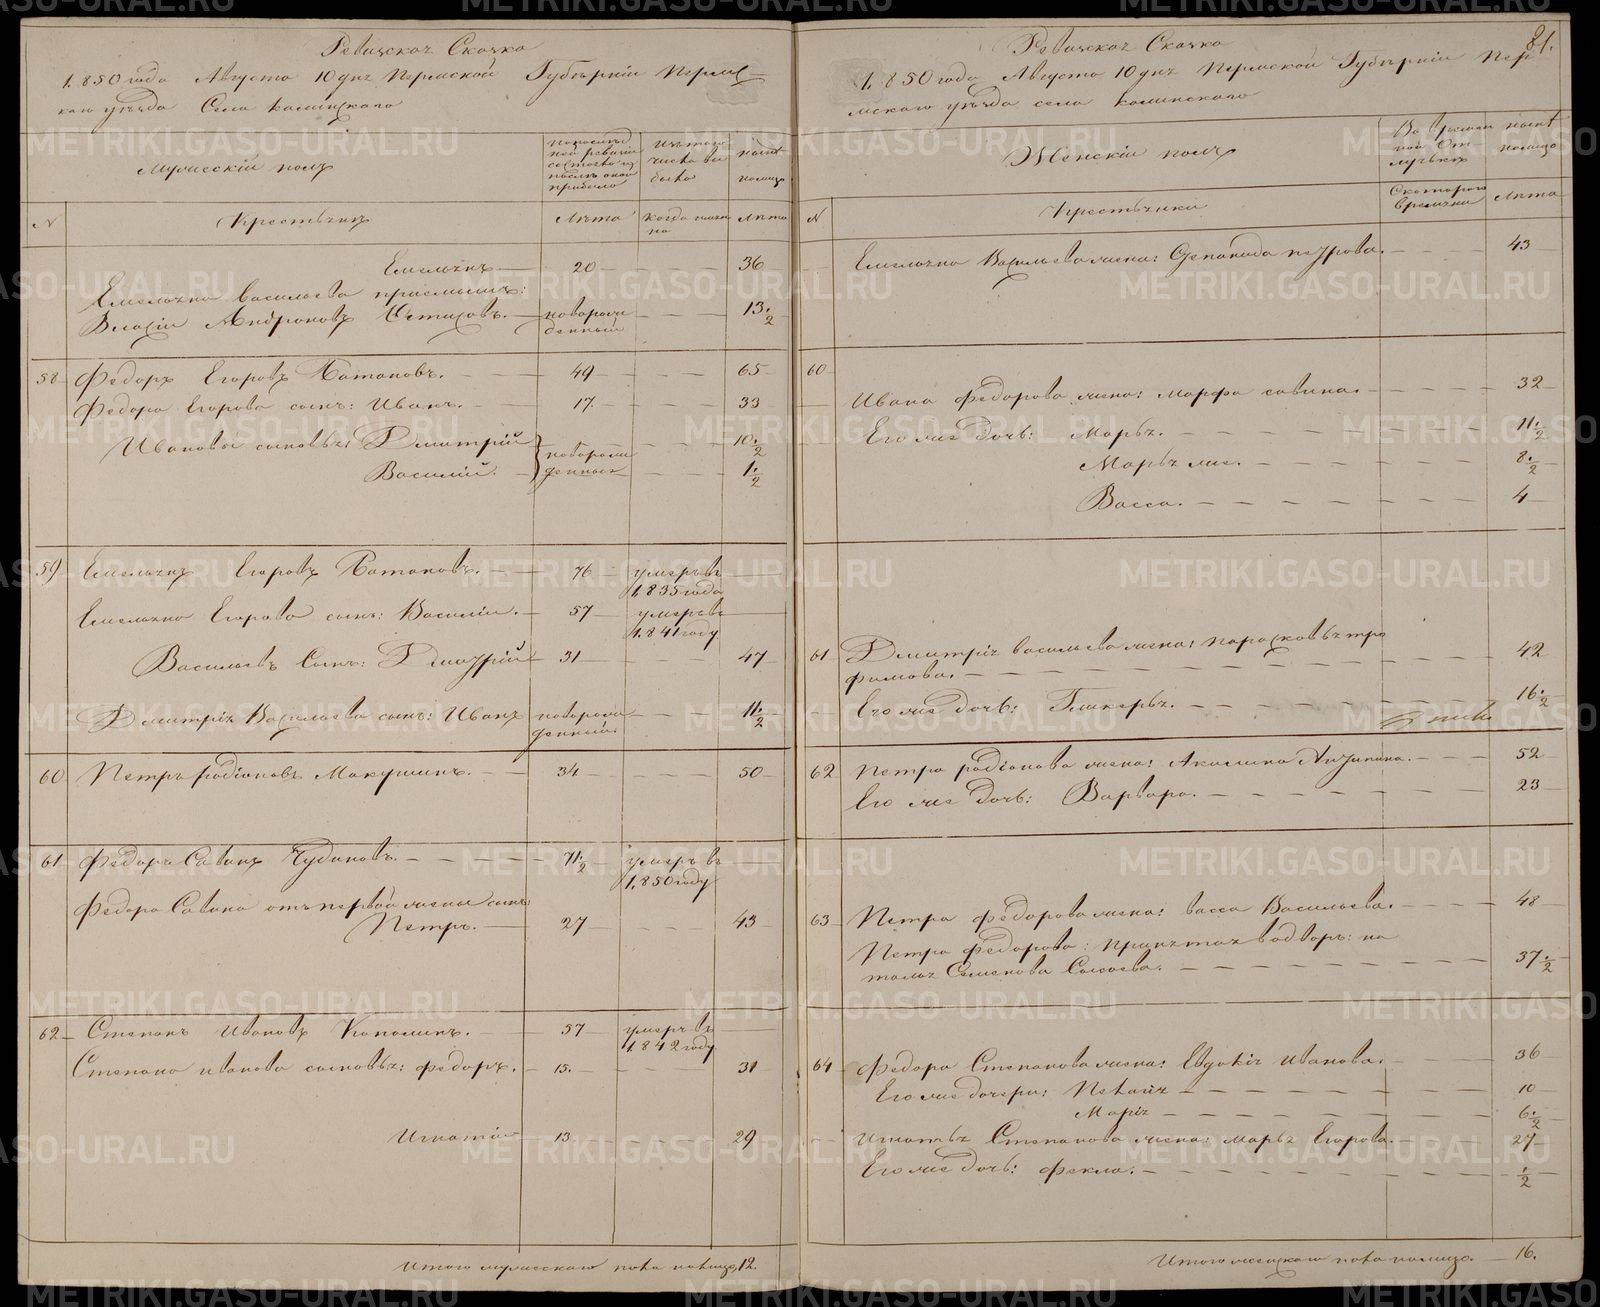 Ревизская Сказка
1.850 года Августа 10 дня Пермской Губерніи Перм-
каго уезда Села
Мужескій полъ
по последней ревизіи состояло и после оной прибыло
Изъ того числа выбыло
ныне на лицо
N
Крестьянъ
Лета
когда имянно
Лета
Емельянъ 20 36
Емельяна Васильева приемышъ:
Андроновъ новорожденный 13.½
58 Федоръ Егоровъ 49 65
Федора Егорова сынъ: Иванъ. 17. 33
Ивановы сыновья: Дмитрій новорожденные 10.½
Василий. 1.½
59 Емельянъ Егоровъ 76 умеръ в 1.835 года
Емельяна Егорова сынъ: Василии. 57 умеръ в 1.841 году
Васильевъ Сынъ: Дмитрій 31 47
Дмитрія Васильева сынъ: Иванъ новорожденный. 11.½
60 Петръ родіоновъ Макушинъ. 34 50
61 Федоръ Савинъ Чудиновъ. 71.½ умеръ в 1.850 году
Федора Савина отъ первой жены сынъ:
Петръ. 27 43
62 Степанъ Ивановъ 57 умеръ в 1.842 году
Степана иванова сыновья: федоръ. 15. 31
Игнатій 13 29
Итого мужескаго пола налицо 12.
81.
Ревизская Сказка
1.850 года Августа 10 дня Пермской Губерніи Пер
мскаго уезда села
Женскій полъ
Во временной Отлучке
ныне налицо
N
Крестьянки
Скотораго времяни
Лета
Емельяна Васильева жена: Степанида петрова. 43
60
Ивана Федорова жена: марфа савина. 32
Его же дочь: Марья. 11.½
Марья же. 8.½
Васса. 4
61 Дмитрія васильева жена: парасковья тро
фимова. 42
Его же дочь: Гликерья. 16.½
62 Петра родіонова жена: Акилина Антипина. 52
Его же дочь: Варвара. 23
63 Петра федорова жена: васса Васильева. 48
Петра федорова: принятая водворъ: на
талья Семенова 37.½
64 Федора Степанова жена: Евдокія иванова. 36
Его же дочери: Пелагія 10
Марія 6.½
Игнатья Степанова жена: марья Егорова. 27
Его же дочь: фекла. ½
Итого женскаго пола налицо. 16.
METRIKI.GASO-URAL.RU